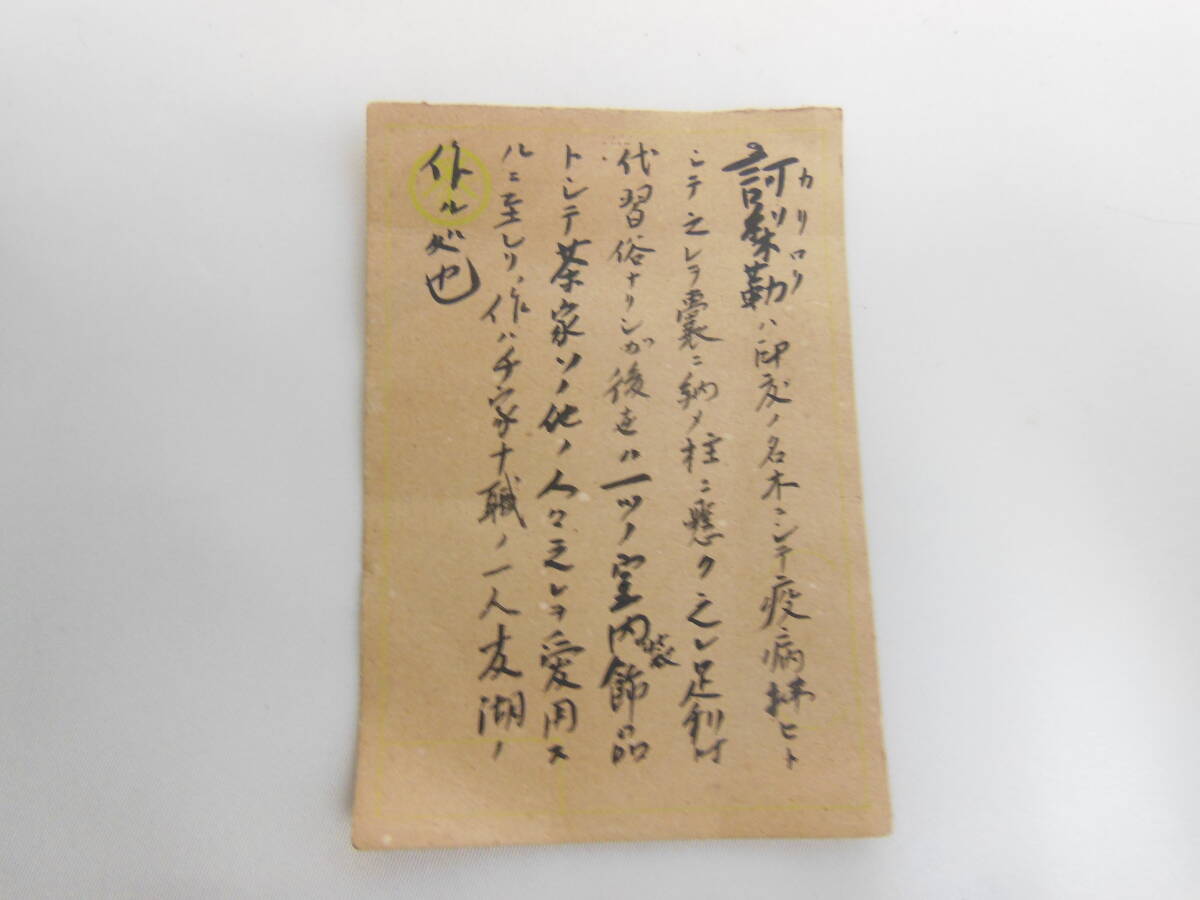 カリロク
訶梨勒ハ印度ノ名木ニシテ疫病拂ヒト
シテ之レヲ嚢ニ納メ柱ニ懸ク之レ足利時
代習俗ナリシガ後世ハ一ツノ室内装飾品
トシテ茶家ソノ他ノ人々之レヲ愛用ス
ルニ至レリ、作ハ千家十職ノ一人友湖ノ
作ル処也